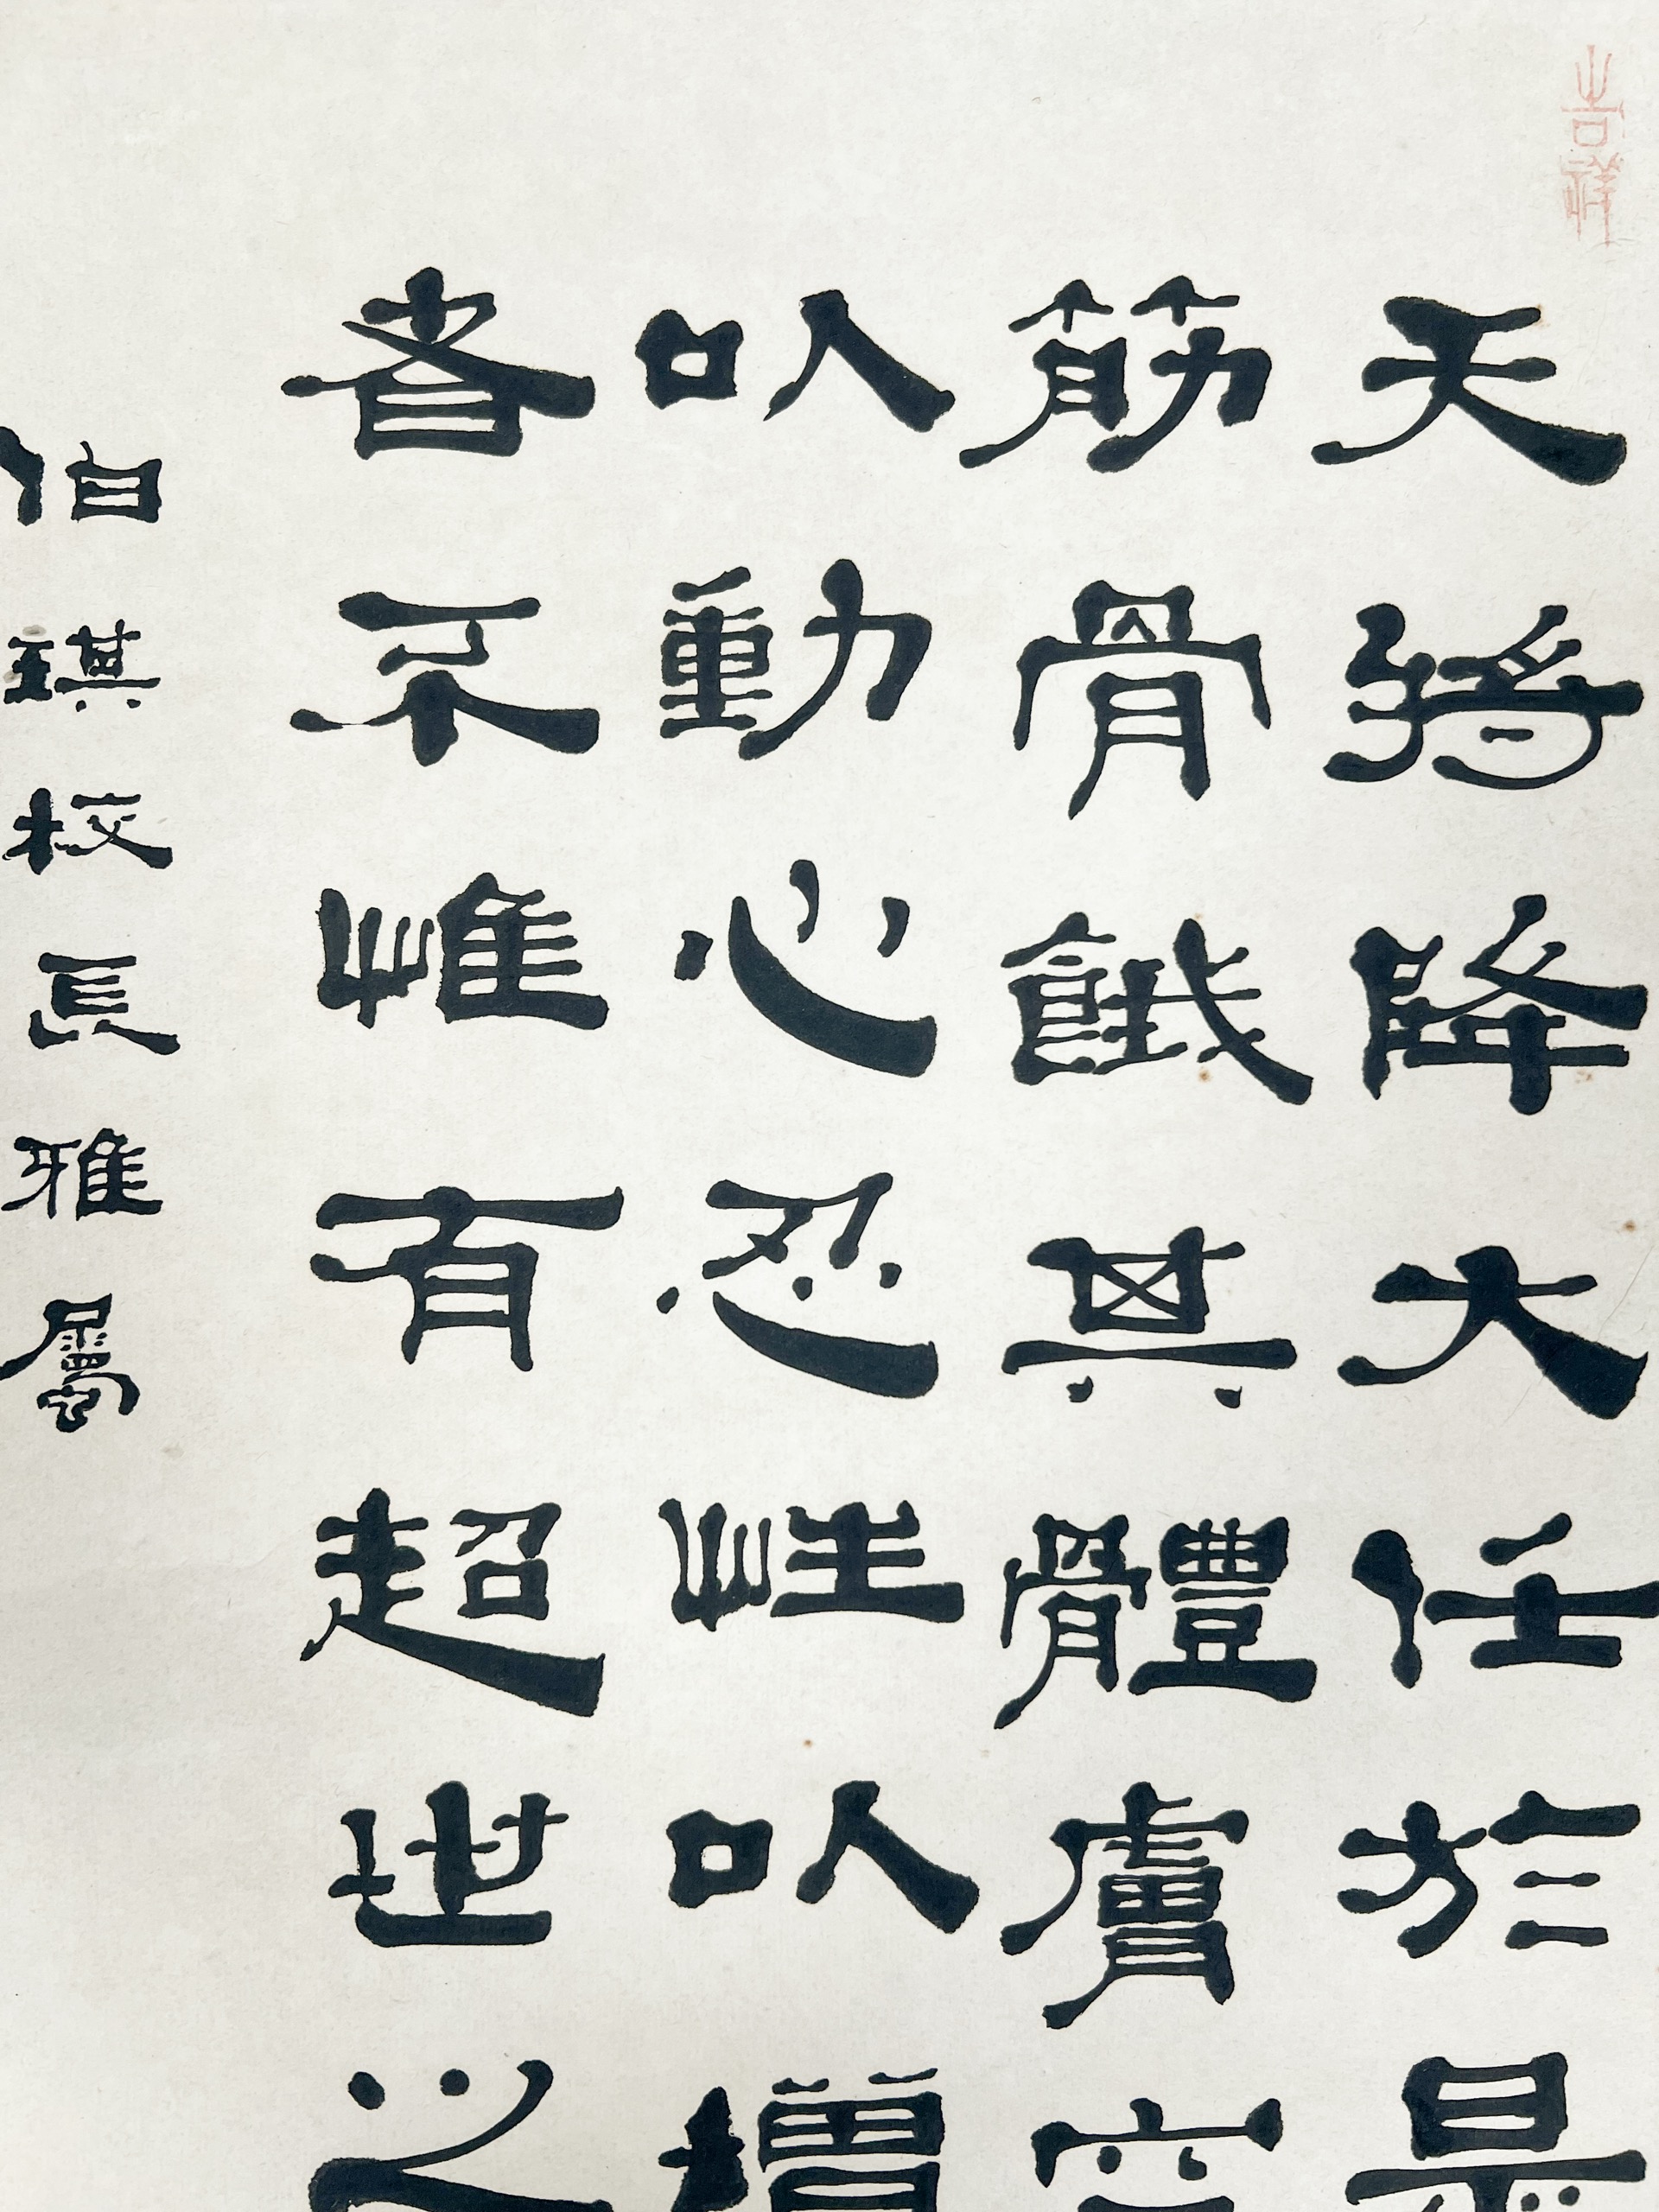 吉祥
天將降大任於是
筋骨餓其體膚空
以動心忍性以增
者不惟有超世之
伯琪校長雅屬